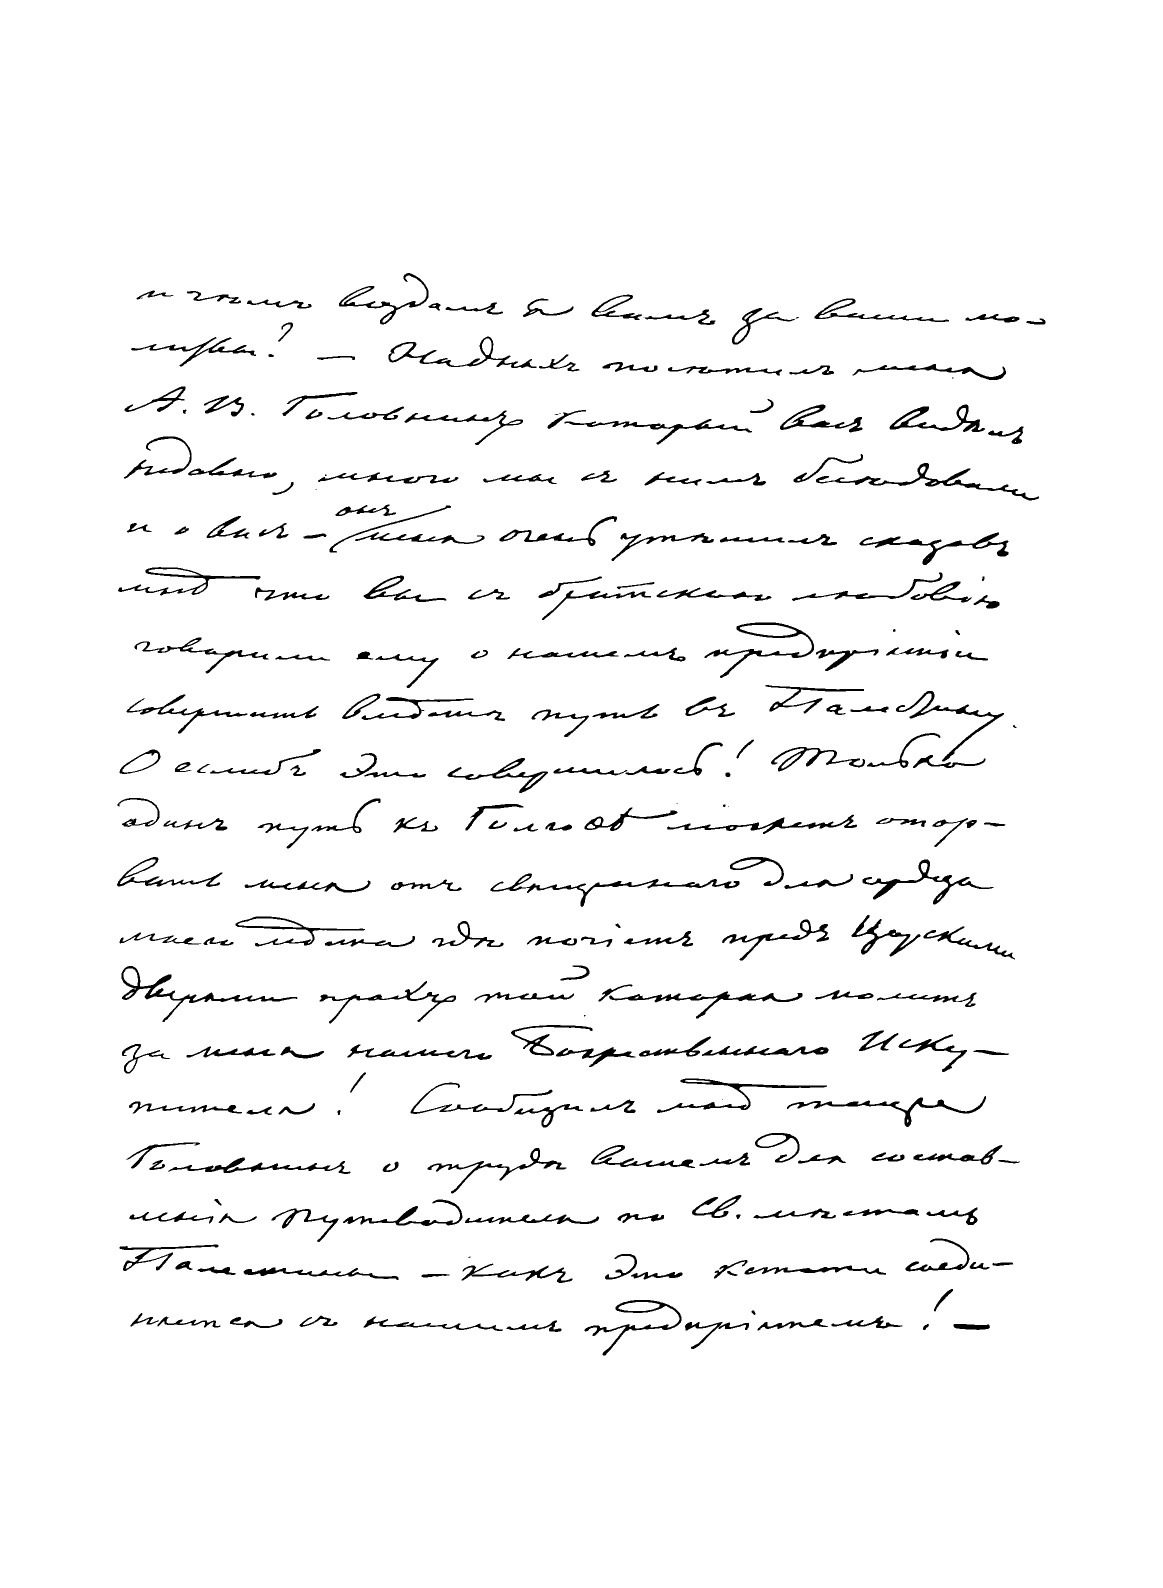 и чѣмъ воздамъ я вамъ за ваши мо-
литвы? — На дняхъ посѣтилъ меня
А. В. Головнинъ который васъ видѣлъ
недавно, много мы съ нимъ бесѣдовали
и о васъ — онъ меня очень утѣшилъ сказавъ
мнѣ что вы съ братскою любовію
говорили ему о нашемъ предпріятіи
совершить вмѣстѣ путь въ Палестину.
О еслибъ это совершилось! Только
одинъ путь къ Голгоѳѣ можетъ отор-
вать меня отъ священнаго для сердца
моего мѣста гдѣ почіетъ предъ Царскими
дверями прахъ той которая молитъ
за меня нашего Божественнаго Иску-
пителя! Сообщилъ мнѣ также
Головнинъ о трудѣ вашемъ для состав-
ленія Путеводителя по Св. мѣстамъ
Палестины — какъ это кстати соеди-
няется съ нашимъ предпріятіемъ! —